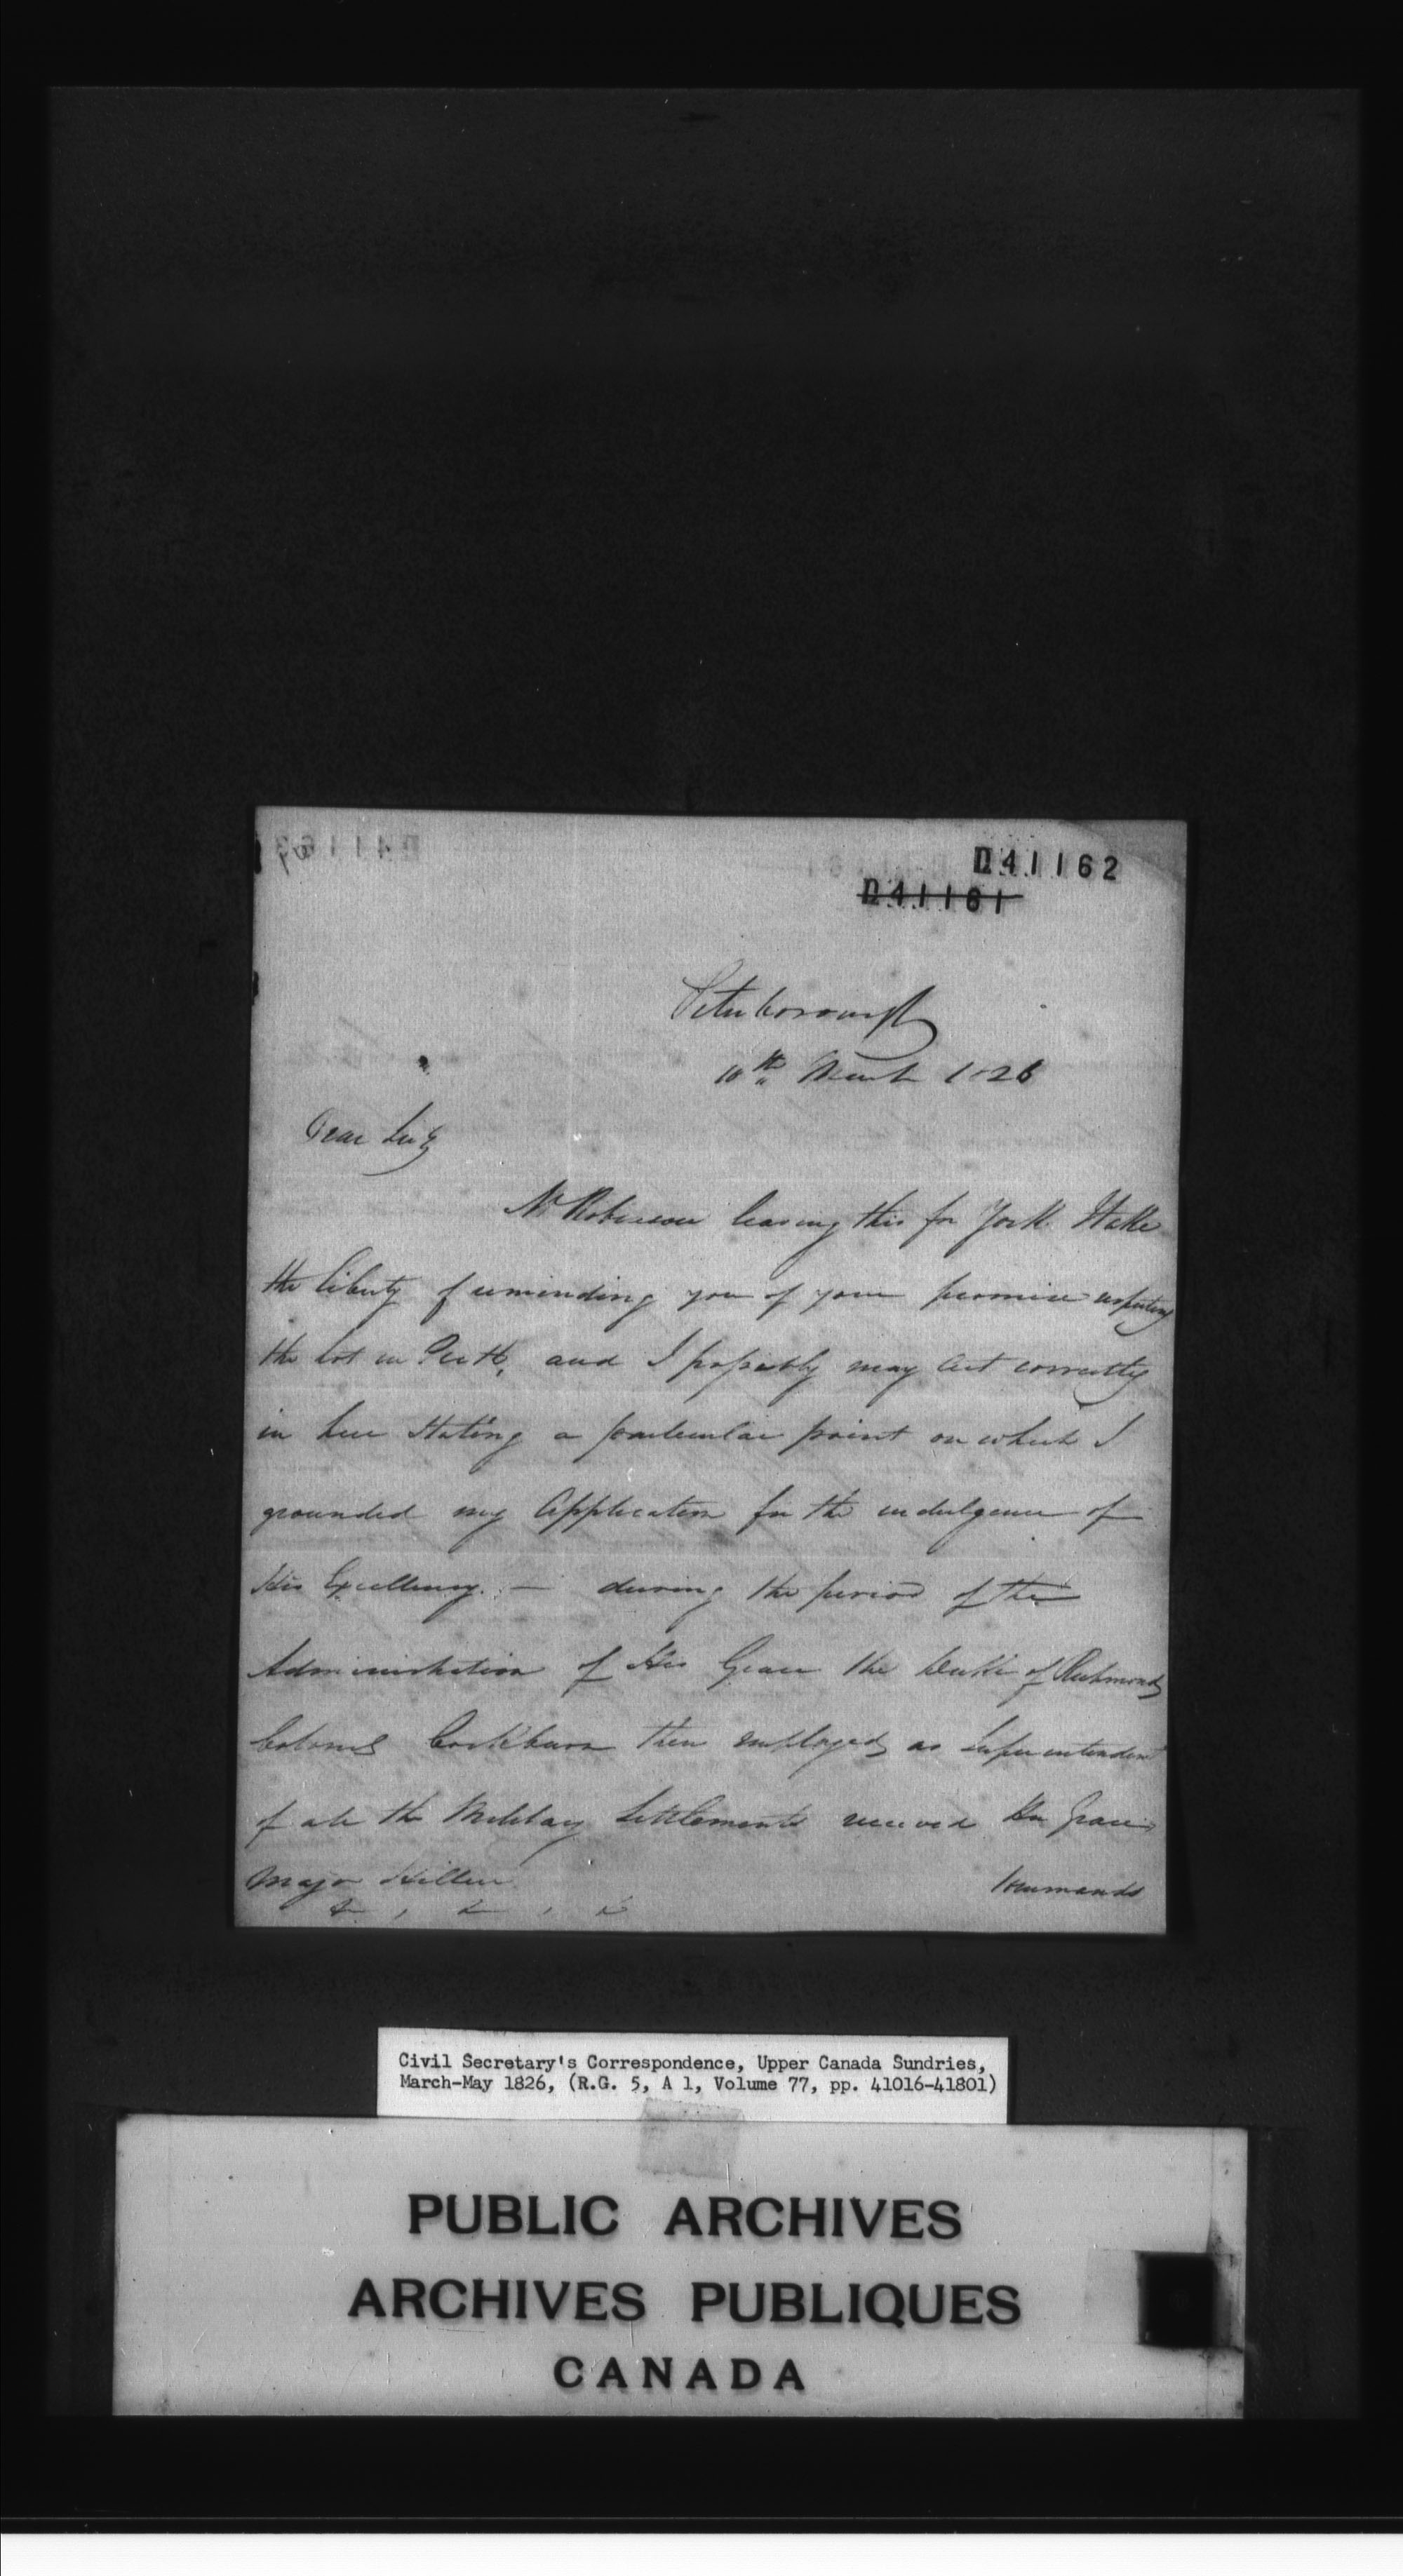 41162
41161
Peterborough
10th March 1826
Dear Sir,
Mr Robinson leaving this for York I take
the liberty of reminding you of your promise respecting
the lot in Perth, and I possibly may act correctly
in here Stating a particular point on which I
grounded my Application for the indulgence of
His Excellency. — during the period of the
Administration of His Grace the Duke of Richmond
Colonel Cockburn then employed as Superintendent
of all the Military Settlements received His Graces
Major Hillier
Commands
& , & , &
Civil Secretary's Correspondence, Upper Canada Sundries,
March-May 1826, (R.G. 5, A 1, Volume 77, pp. 41016-41801)
PUBLIC ARCHIVES
ARCHIVES PUBLIQUES
CANADA